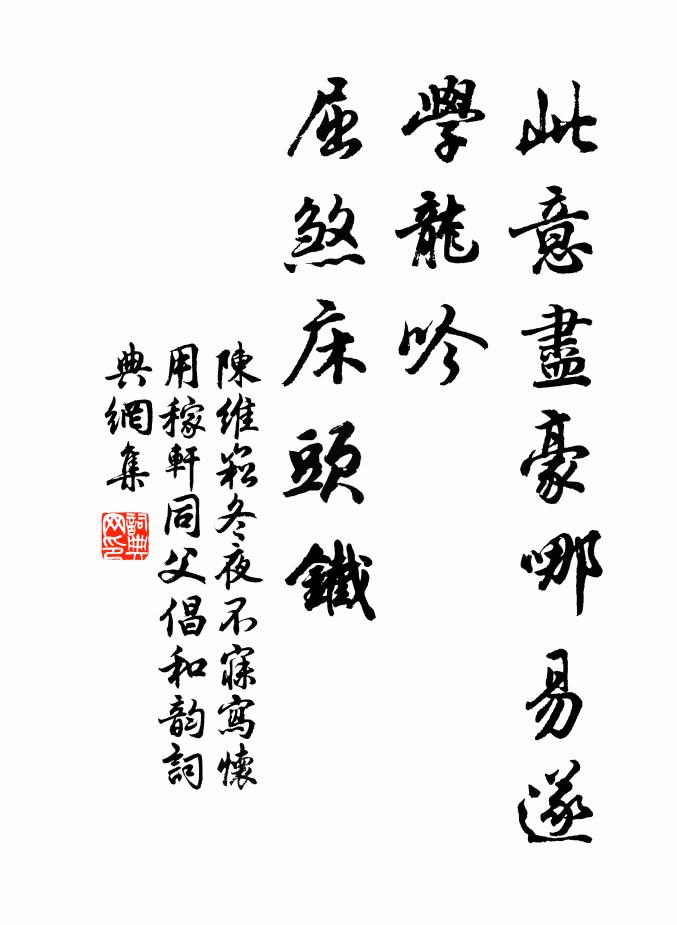 此意盡豪哪易遂
學龍吟
屈煞床頭鐵
陳維崧冬夜不寐寫懷
用稼軒同父倡和韵詞
典網集
詞典網印